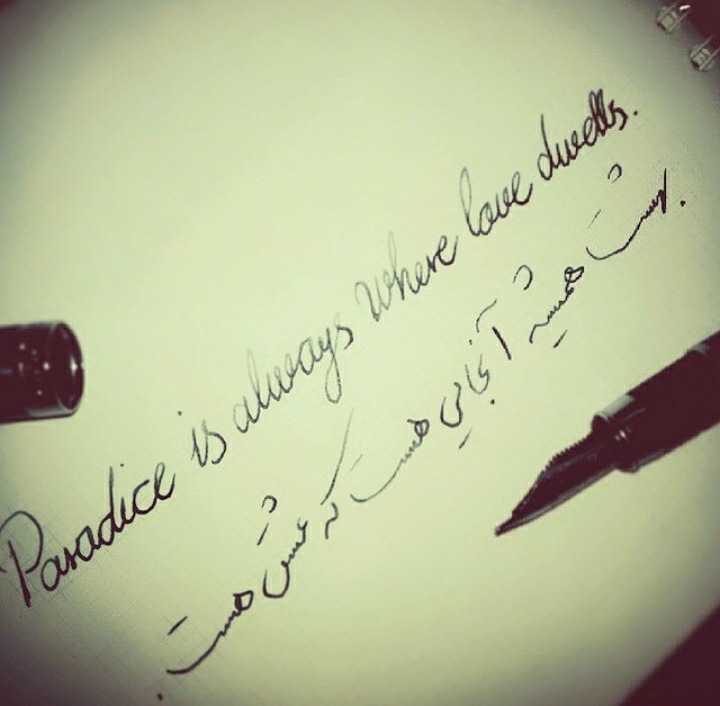 Paradice is always where love dwells.
بهشت همیشه آنجایی هست که عشق هست.